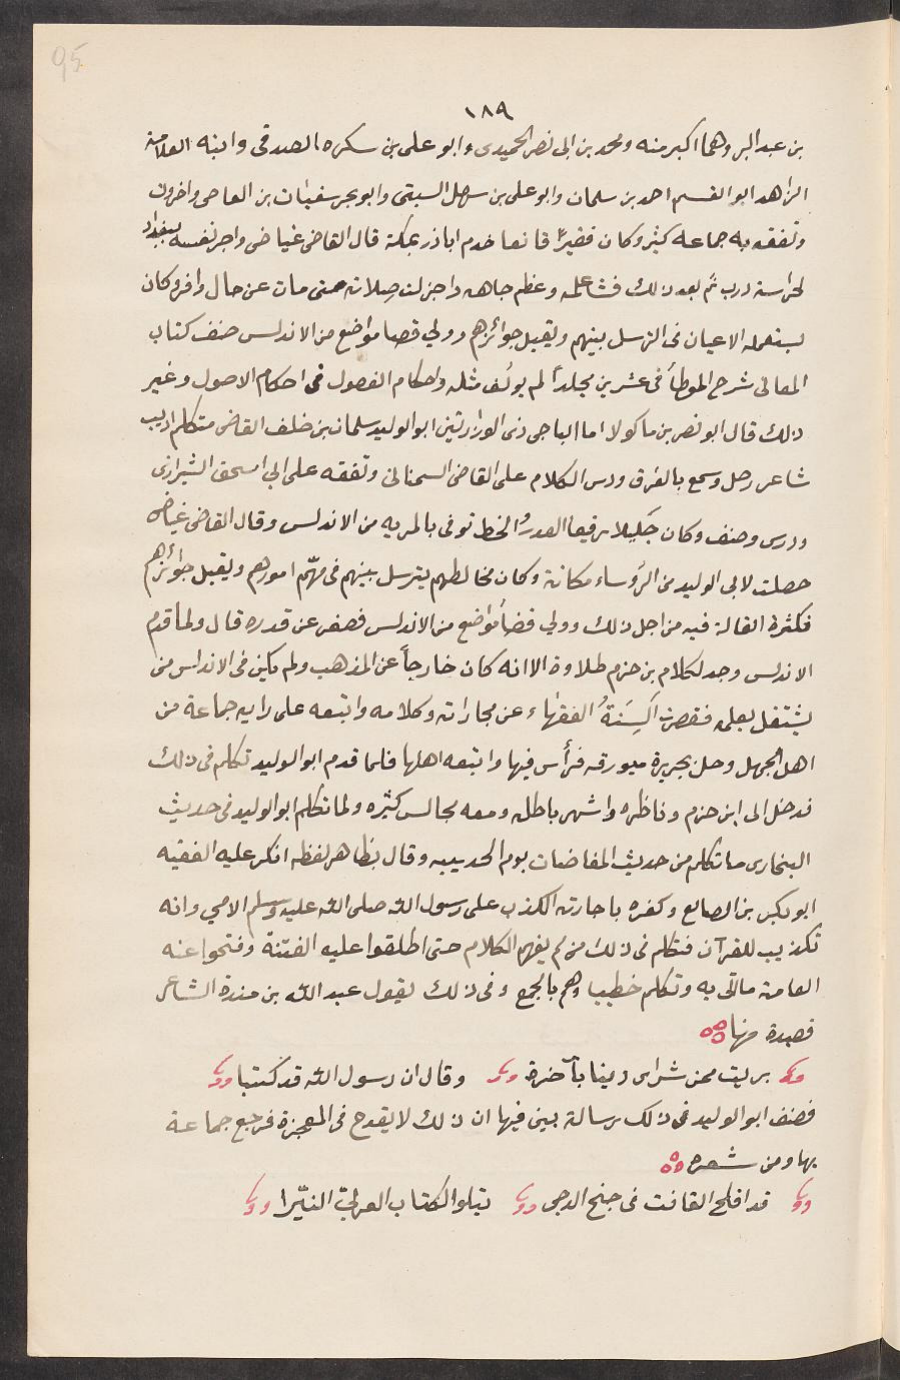 95
١٨٩
بن عبد البر وهما اكبر منه ومحمد بن ابى نصر الحميدى وابو على بن سكره الصدفى وابنه العلامة
الزاهد ابو القسم احمد بن سلمان وابو على بن سهل السبتى وابو بحر سفيان بن العاصى واخرون
وتفقه به جماعه كثير وكان فقيرًا قانعا خدم اباذر بمكة قال القاضى عياضى واجر نفسه ببغداد
لحراسة درب ثم بعد ذلك فشا علمه وعظم جاهه واجزلت صلاته حتى مات عن حال وافر وكان
يستعمله الاعيان فى الترسل بينهم ويقبل جوائزهم وولي قضا مواضع من الاندلس صنف كتاب
المعانى شرح الموطأ فى عشرين مجلدًا لم يولف مثله واحكام الفصول فى احكام الاصول وغير
ذلك قال ابو نصر بن ماكولا اما الباجى ذى الوزارتين ابو الوليد سلمان بن خلف القاضى متكلم اديب
شاعر رحل وسمع بالعراق ودرس الكلام على القاضى السمنانى وتفقه على ابي اسحق الشيرازى
ودرس وصنف وكان جَليلا رفيعا القدر والخط توفى بالمريه من الاندلس وقال القاضى عياضه
حصلت لابى الوليد من الرؤساء مكانة وكان مخالطهم يترسل بينهم فى مهمّ امورهم ويقبل جوائزهم
فكثرة القالة فيه من اجل ذلك وولي قضأ مواضع من الاندلس فصغر عن قدره قال ولما قدم
الاندلس وجد لكلام بن حزم طلاوة الا انه كان خارجاً عن المذهب ولم يكن فى الاندلس من
يشتغل بعلمه فقصرت السِنَةُ الفقهاء عن مجاراته وكلامه واتبعه على رايه جماعة من
اهل الجهل وحل بجزيرة ميورقه فرأس فيها واتبعه اهلها فلما قدم ابو الوليد تكلم فى ذلك
فدخل الى ابن حزم وناظره واشهر باطله ومعه مجالس كثيره ولما تكلم ابو الوليد فى حديث
البخارى ما تكلم من حديث المفاضات يوم الحديبيه وقال بظاهر لفظه انكر عليه الفقيه
ابو بكر بن الصايع وكفره باجازته الكذب على رسول الله صلى الله عليه وسلم الامي وانه
تكذيب للقرآن فتكلم فى ذلك من لم يفهم الكلام حتى اطلقوا عليه الفتنة وفتحوا عنه
العامة ما اتى به وتكلم خطيبا وهم بالجمع وفى ذلك يقول عبد الله بن مندة الشاعر
قصيدة منها
بريت ممن شراى دينا بآخرة وقال ان رسول الله قد كتبا
فصنف ابو الوليد فى ذلك رسالة بين فيها ان ذلك لا يقدح فى المعجزة فرجع جماعة
بها ومن شعره
قد افلح القانت فى جنح الدجى يتلو الكتاب العربيّ النيّرا